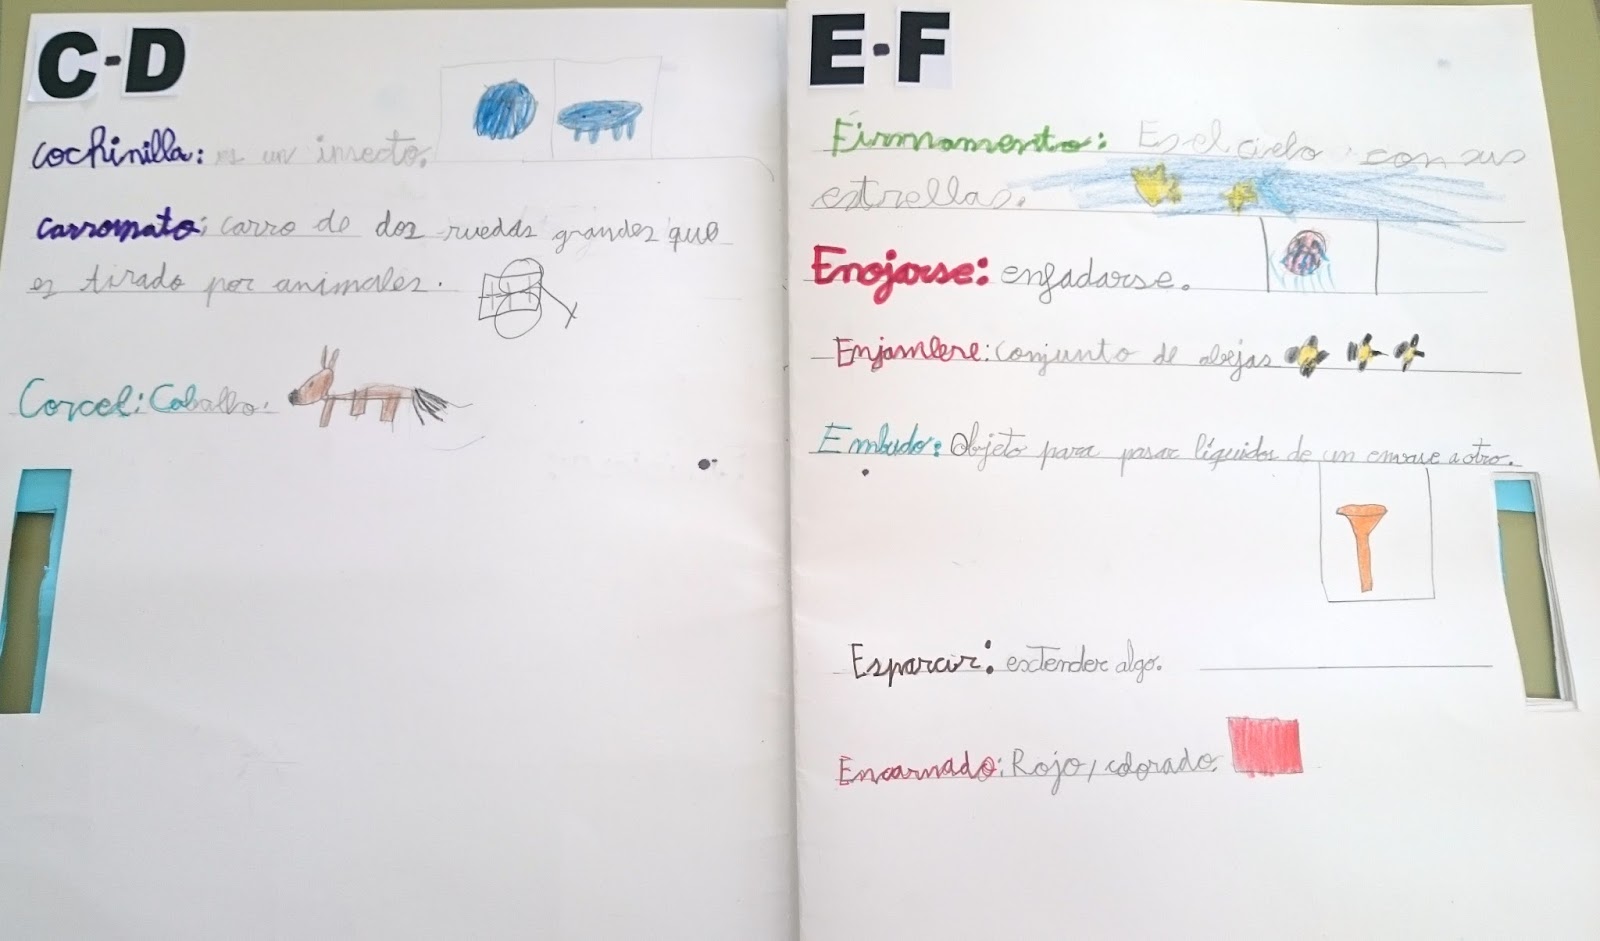 C-D
cochinilla: es un insecto.
carromato: carro de dos ruedas grandes que
es tirado por animales.
Corcel: Caballo.
E-F
Firmamento: Es el cielo con sus
estrellas.
Enojarse: enfadarse.
Enjambre: conjunto de abejas
Embudo: Objeto para pasar líquidos de un envase a otro.
Esparcir: extender algo.
Encarnado: Rojo, colorado.